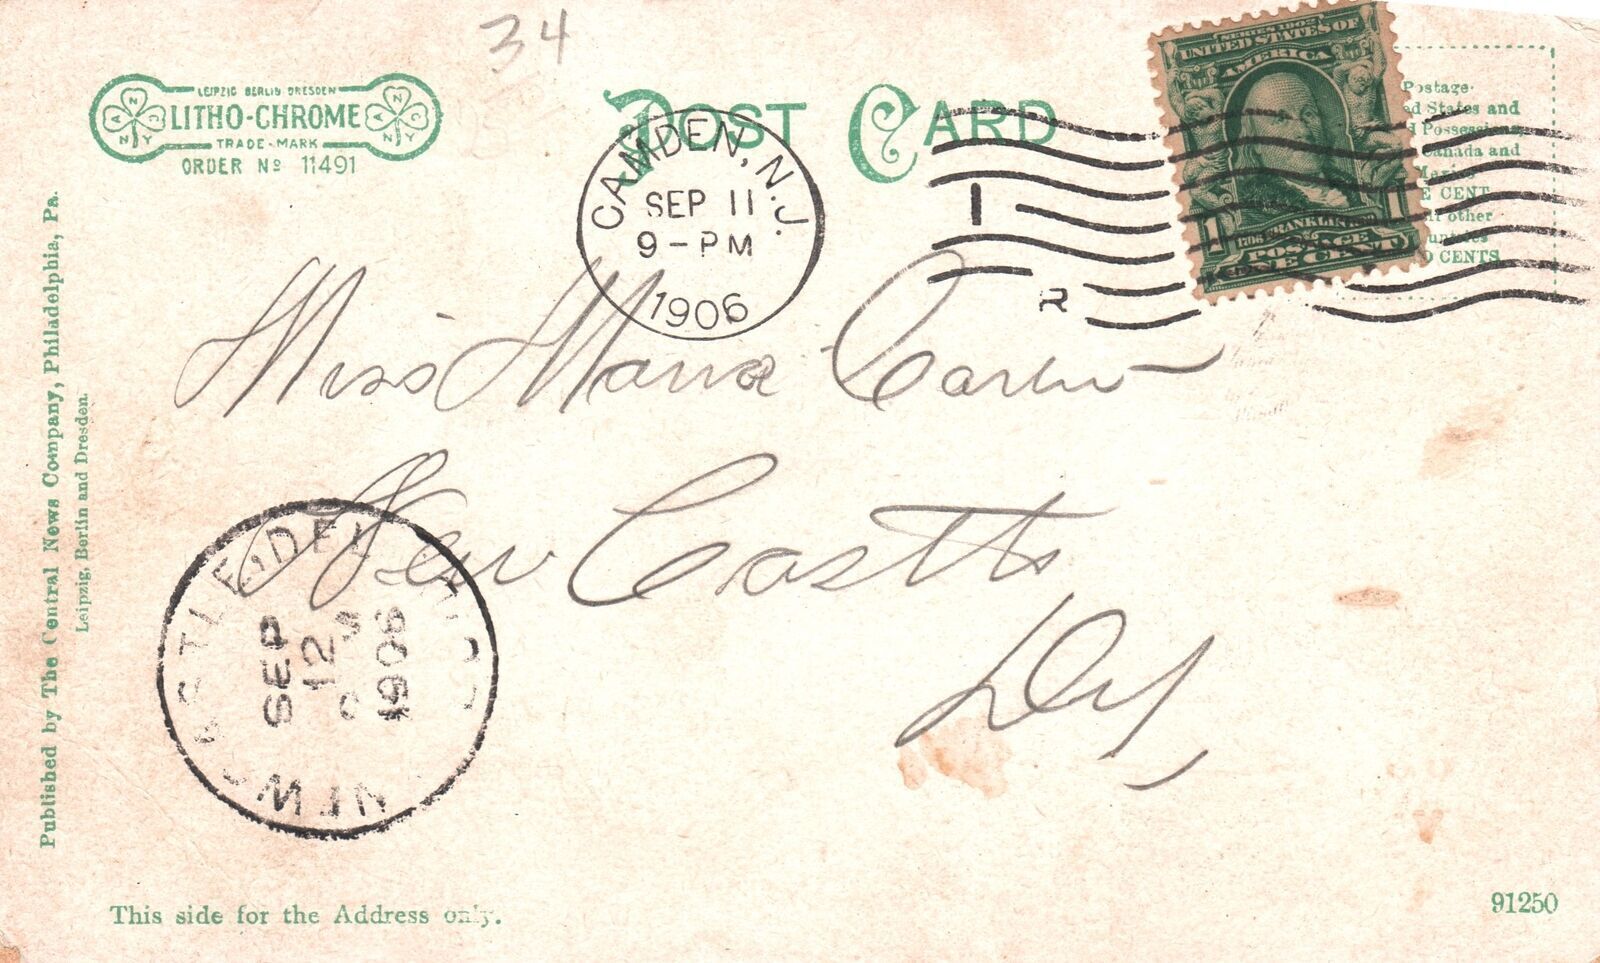 34
LEIPZIG BERLIN DRESDEN
LITHO-CHROME
TRADE-MARK
ORDER No 11491
POST CARD
CAMDEN, N.J.
SEP 11
9-PM
1906
SERIES 1902
UNITED STATES OF
AMERICA
FRANKLIN
POSTAGE
ONE CENT
1 1
Postage
States and
Possessions,
Canada and
Mexico
CENT
other
CENTS
1
R
Miss
New Castle
NEW CASTLE, DEL.
SEP
12
1906
Published by The Central News Company, Philadelphia, Pa.
Leipzig, Berlin and Dresden.
This side for the Address only.
91250